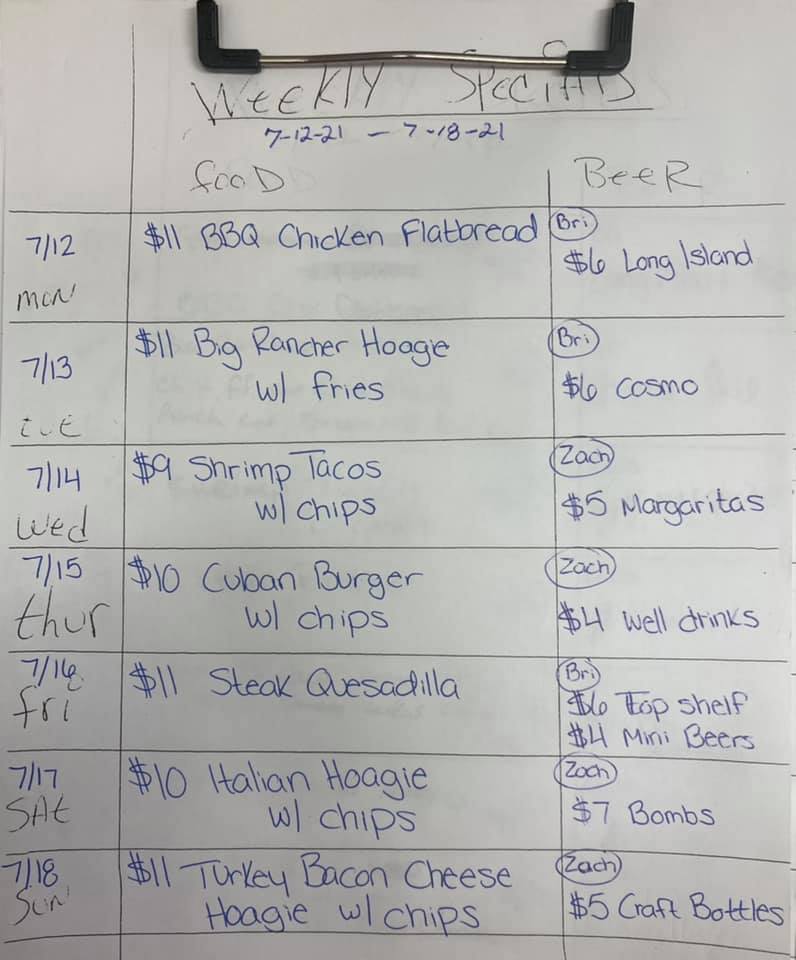 WEEKLY SPECIALS
7-12-21 — 7-18-21
fooD BeeR
7/12 $11 BBQ Chicken Flatbread Bri
mon $6 Long Island
7/13 $11 Big Rancher Hoagie Bri
w/ fries $6 Cosmo
tuE
7/14 $9 Shrimp Tacos Zach
wed w/ chips $5 Margaritas
7/15 $10 Cuban Burger Zach
thur w/ chips $4 well drinks
7/16 $11 Steak Quesadilla Bri
fri $6 Top shelf
$4 Mini Beers
7/17 $10 Italian Hoagie Zach
SAt w/ chips $7 Bombs
7/18 $11 Turkey Bacon Cheese Zach
Sun Hoagie w/ chips $5 Craft Bottles